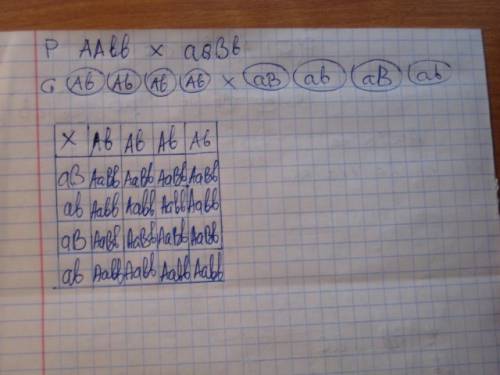 P AAbb × aaBb
G Ab Ab Ab Ab × aB ab aB ab
X Ab Ab Ab Ab
aB AaBb AaBb AaBb AaBb
ab Aabb Aabb Aabb Aabb
aB AaBb AaBb AaBb AaBb
ab Aabb Aabb Aabb Aabb